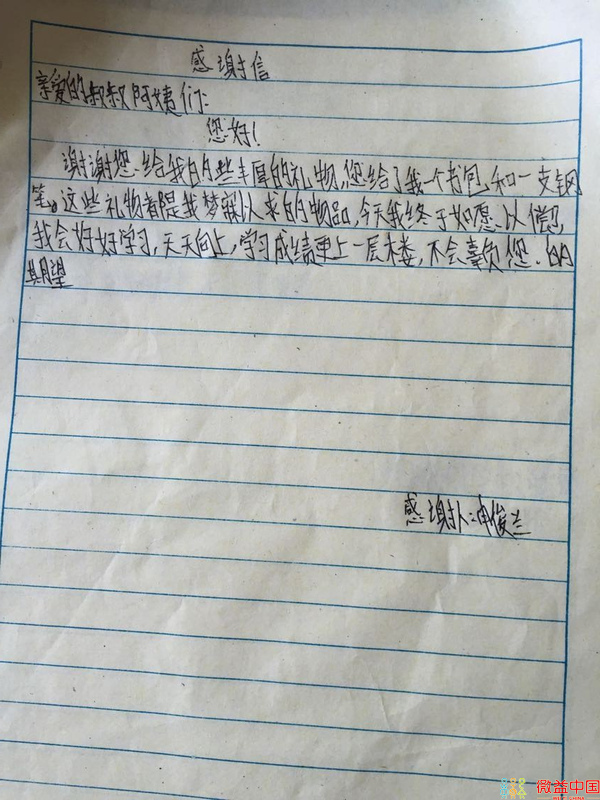 感谢信
亲爱的叔叔阿姨们:
您好!
谢谢您.给我的些丰厚的礼物,您给了我一个书包,和一支钢
笔。这些礼物都是我梦寐以求的物品,今天我终于如愿.以偿,
我会好好学习,天天向上,学习成绩更上一层木楼,不会辜负您.的
期望
感谢人:申俊兰
微益中国